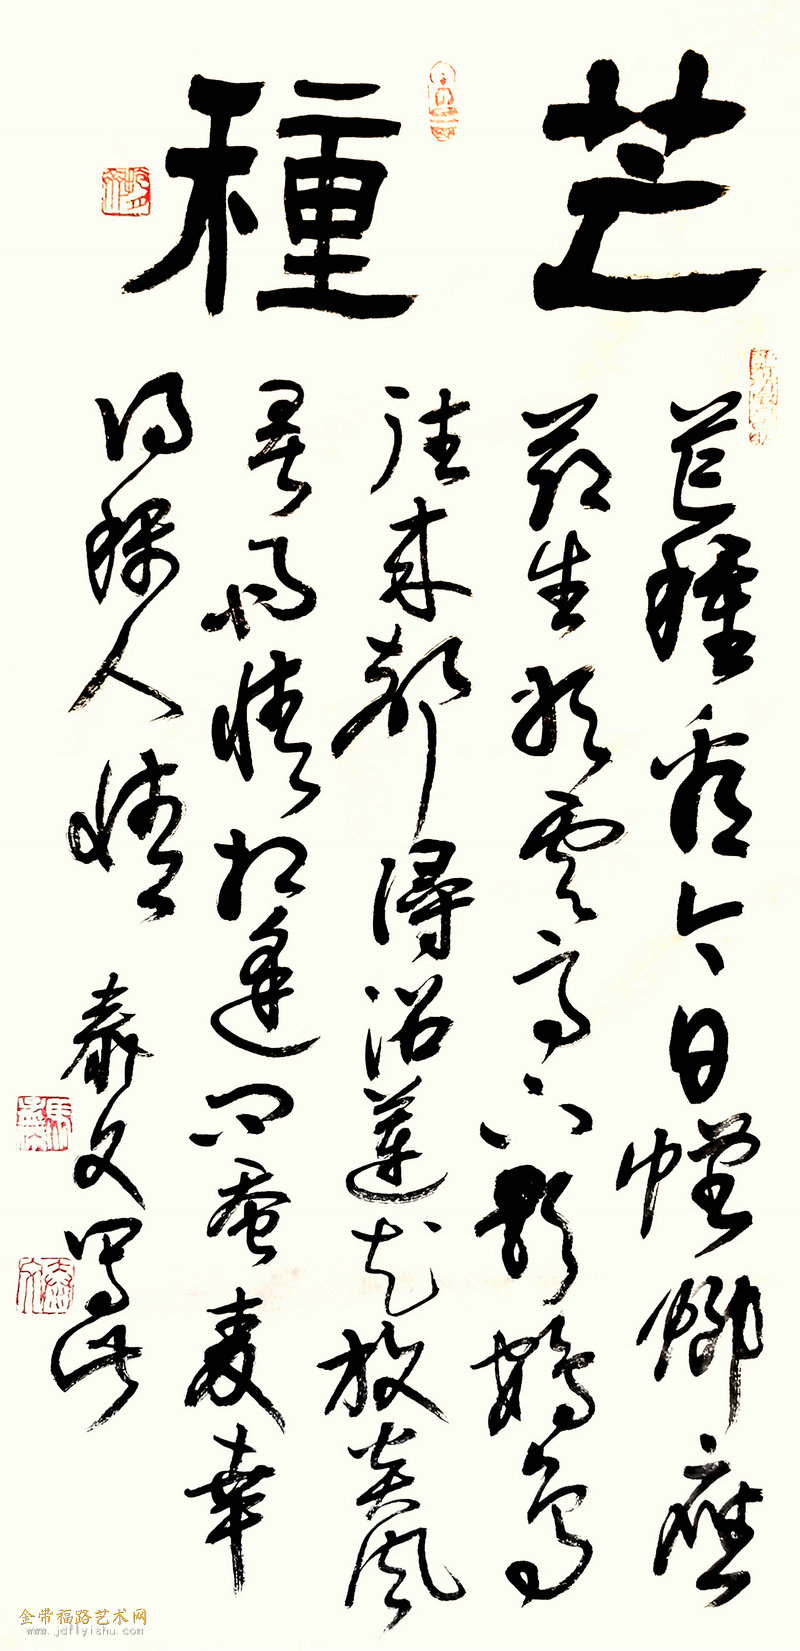 芒種
芒種看今日螳螂應
節生彤雲高下影鴳鳥
往来聲潯沼蓮花放炎風
暑雨情相逢问蚕麦幸
得稱人情 泰文寫此
金带福路艺术网
www.jdflyishu.com